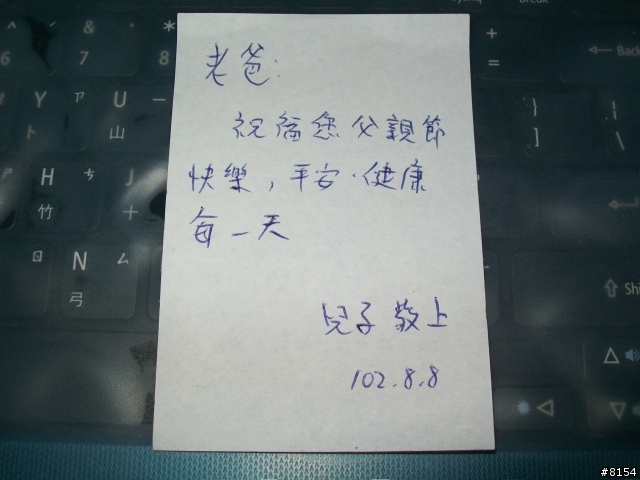 老爸:
祝福您父親節
快樂,平安.健康
每一天
兒子 敬上
102.8.8
sysrq
Break
&
*
+
6
7
8
=
← Back
Y
ㄗ
U
ㄧ
}
|
卜
山
]
\
H
ㄘ
J
ㄨ
竹
十
N
ㄙ
弓
⇧ Shi
#8154